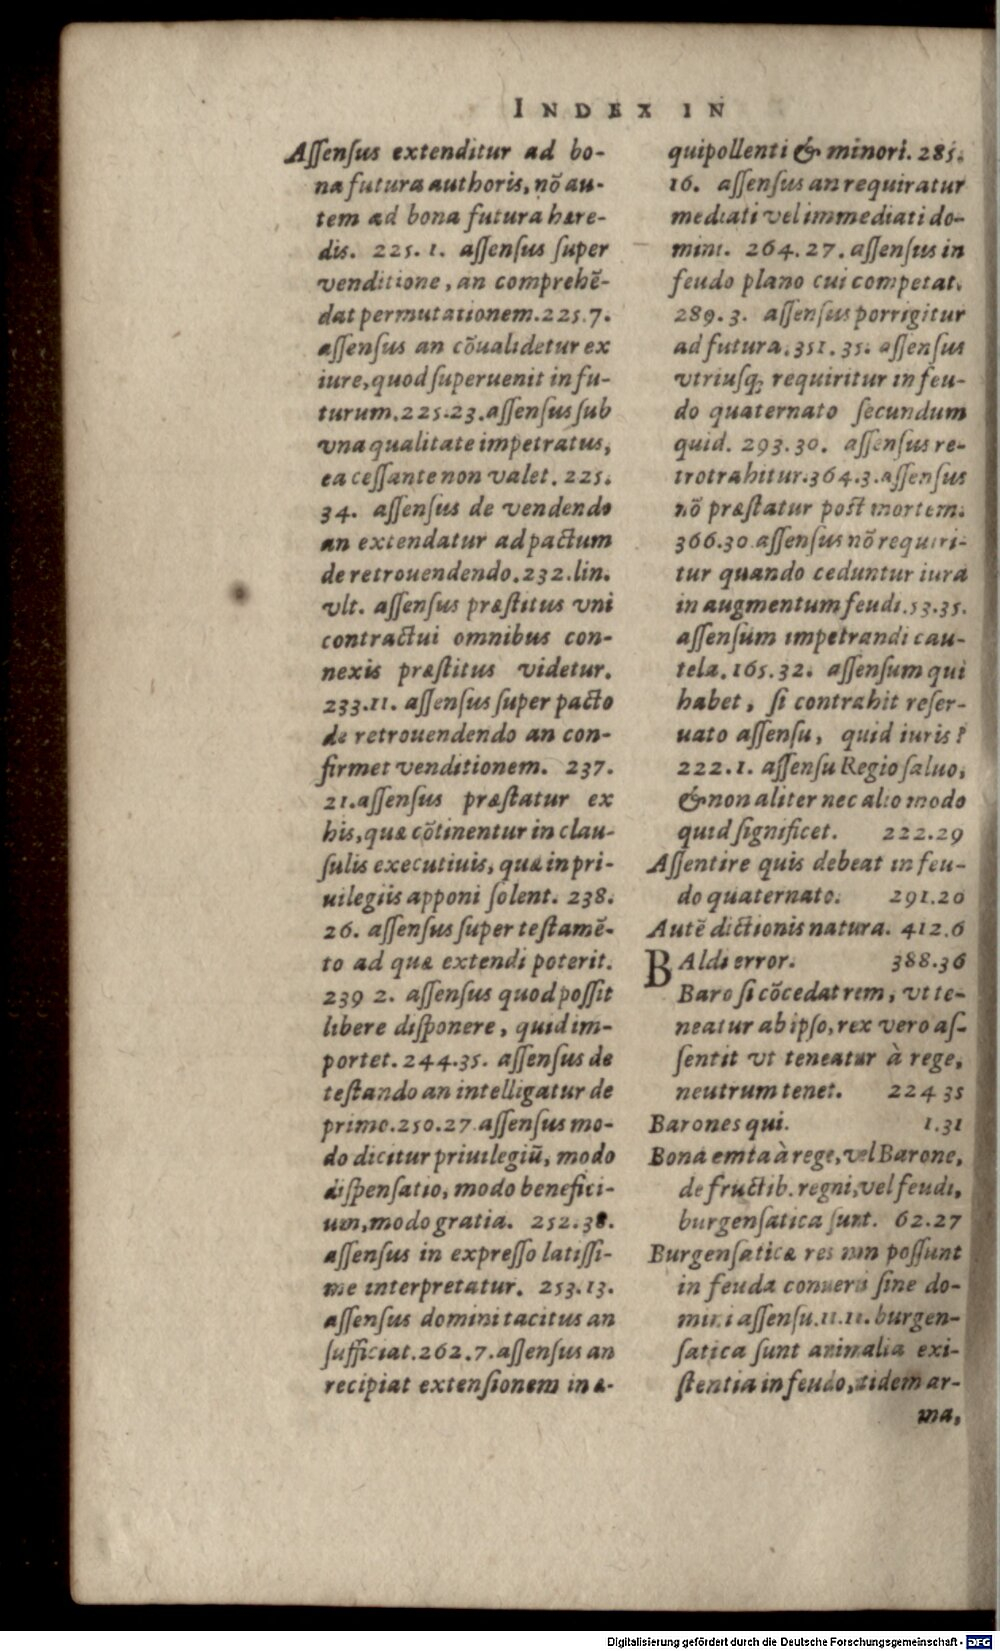 INDEX IN
Aſſenſus extenditur ad bo-
na futura authoris, nõ au-
tem ad bona futura hære-
dis. 225. 1. aſſenſus ſuper
venditione, an comprehẽ-
dat permutationem. 225. 7.
aſſenſus an cõualidetur ex
iure, quod ſuperuenit in fu-
turum. 225. 23. aſſenſus ſub
vna qualitate impetratus,
ea ceſſante non valet. 225.
34. aſſenſus de vendendo
an extendatur ad pactum
de retrouendendo. 232. lin.
vlt. aſſenſus præſtitus vni
contractui omnibus con-
nexis præſtitus videtur.
233. 11. aſſenſus ſuper pacto
de retrouendendo an con-
firmet venditionem. 237.
21. aſſenſus præſtatur ex
his, quæ cõtinentur in clau-
ſulis executiuis, quæ in pri-
uilegiis apponi ſolent. 238.
26. aſſenſus ſuper teſtamẽ-
to ad quæ extendi poterit.
239 2. aſſenſus quod poſſit
libere diſponere, quid im-
portet. 244. 35. aſſenſus de
teſtando an intelligatur de
primo. 250. 27 aſſenſus mo-
do dicitur priuilegiũ, modo
diſpenſatio, modo benefici-
um, modo gratia. 252. 38.
aſſenſus in expreſſo latiſſi-
me interpretatur. 253. 13.
aſſenſus domini tacitus an
ſufficiat. 262. 7. aſſenſus an
recipiat extenſionem in æ-
quipollenti & minori. 285.
16. aſſenſus an requiratur
mediati vel immediati do-
mini. 264. 27. aſſenſus in
feudo plano cui competat.
289. 3. aſſenſus porrigitur
ad futura. 351. 35. aſſenſus
vtriuſq; requiritur in feu-
do quaternato ſecundum
quid. 293. 30. aſſenſus re-
trotrahitur. 364. 3. aſſenſus
nõ præſtatur poſt mortem.
366. 30 aſſenſus nõ requiri-
tur quando ceduntur iura
in augmentum feudi. 53. 35.
aſſenſum impetrandi cau-
tela. 165. 32. aſſenſum qui
habet, ſi contrahit reſer-
uato aſſenſu, quid iuris?
222. 1. aſſenſu Regio ſaluo,
& non aliter nec alio modo
quid ſignificet. 222. 29
Aſſentire quis debeat in feu-
do quaternato. 291. 20
Autẽ dictionis natura. 412. 6
BAldi error. 388. 36
Baro ſi cõcedat rem, vt te-
neatur ab ipſo, rex vero aſ-
ſentit vt teneatur à rege,
neutrum tenet. 224 35
Barones qui. 1. 31
Bona emta à rege, vel Barone,
de fructib. regni, vel feudi,
burgenſatica ſunt. 62. 27
Burgenſaticæ res non poſſunt
in feuda conuerti ſine do-
mini aſſenſu. 11. 11. burgen-
ſatica ſunt animalia exi-
ſtentia in feudo, itidem ar-
ma,
Digitalisierung gefördert durch die Deutsche Forschungsgemeinschaft - DFG